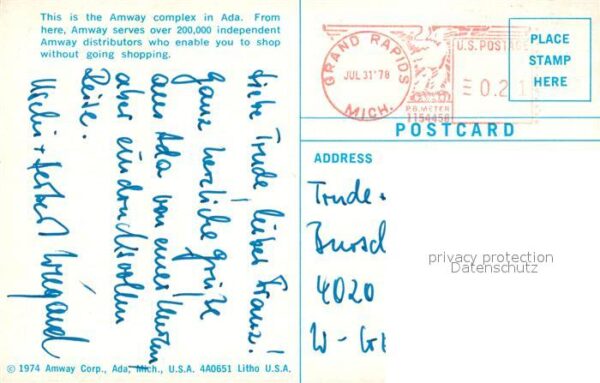 This is the Amway complex in Ada. From
here, Amway serves over 200,000 independent
Amway distributors who enable you to shop
without going shopping.
Liebe Trude, lieber Franz!
ganz herzliche Grüße
aus Ada von einer kurzen
aber eindrucksvollen
Reise.
Michi + Herbert Wiegand
© 1974 Amway Corp., Ada, Mich., U.S.A. 4A0651 Litho U.S.A.
GRAND RAPIDS
JUL 31 '78
MICH.
U.S. POSTAGE
0.21
P.B. METER
1154458
PLACE
STAMP
HERE
POSTCARD
ADDRESS
Trude +
Busch
4020
W-Gr
privacy protection
Datenschutz